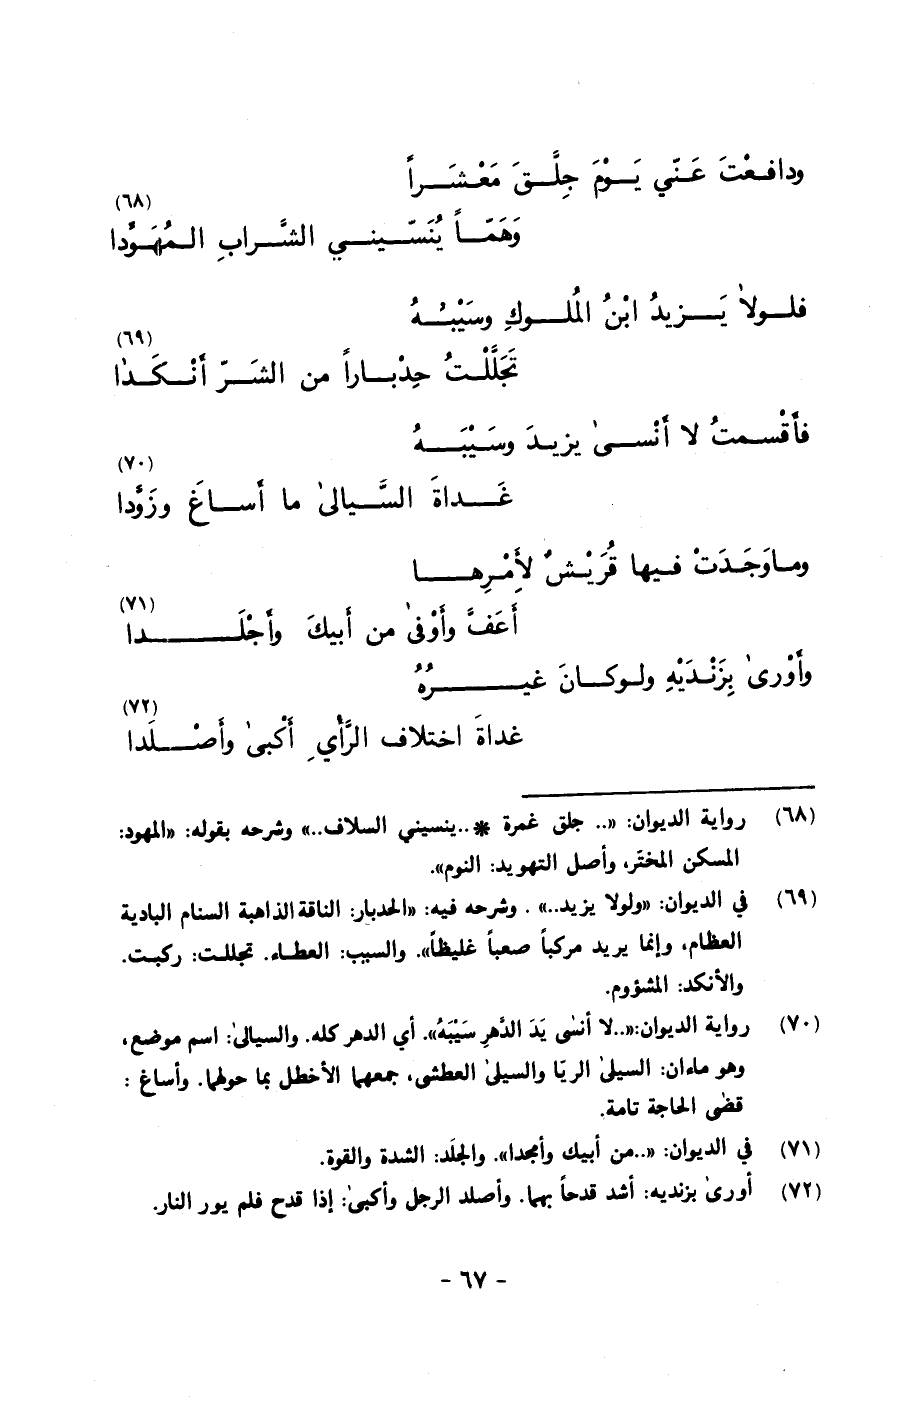 ودافعْتَ عَنّي يَوْمَ جِلَّقَ مَعْشَراً
(٦٨)
وَهَمّاً يُنَسّيني الشَّرابِ المُهَوُّدا
فلولا يَزيدُ ابْنُ المُلوكِ وسَيْبُهُ
(٦٩)
تَجَلَّلْتُ حِدْباراً من الشَرّ أَنْكَدا
فأَقْسمتُ لا أَنْسىٰ يزيدَ وسَيْبَهُ
(٧٠)
غَداةَ السَّيالىٰ ما أَساغَ وزَوَّدا
وماوَجَدَتْ فيها قُرَيْشٌ لأِمْرِها
(٧١)
أَعَفَّ وأَوْفىٰ من أَبيكَ وأَجْلَدا
وأَوْرىٰ بِزَنْدَيْهِ ولوكانَ غيرُهُ
(٧٢)
غداةَ اختلاف الرَّأْيِ أَكْبىٰ وأَصْلَدا
(٦٨) رواية الديوان: «.. جلق غمرة *..ينسيني السلاف..» وشرحه بقوله: «المهود:
المسكن المختَّر، وأصل التهويد: النوم».
(٦٩) في الديوان: «ولولا يزيد..» . وشرحه فيه: «الحدبار: الناقة الذاهبة السنام البادية
العظام، وإنما يريد مركباً صعباً غليظاً». والسيب: العطاء. تجللت: ركبت.
والأنكد: المشؤوم.
(٧٠) رواية الديوان:«..لا أنسٰى يَدَ الدَّهرِ سَيْبَهُ». أي الدهر كله. والسيالىٰ: اسم موضع،
وهو ماءان: السيلىٰ الريّا والسيلىٰ العطشى، جمعهما الأخطل بما حولهما. وأساغ :
قضٰى الحاجة تامة.
(٧١) في الديوان: «..من أبيك وأمجدا». والجلَد: الشدة والقوة.
(٧٢) أورىٰ بزنديه: أشد قدحاً بهما. وأصلد الرجل وأكبىٰ: إذا قدح فلم يور النار.
- ٦٧ -